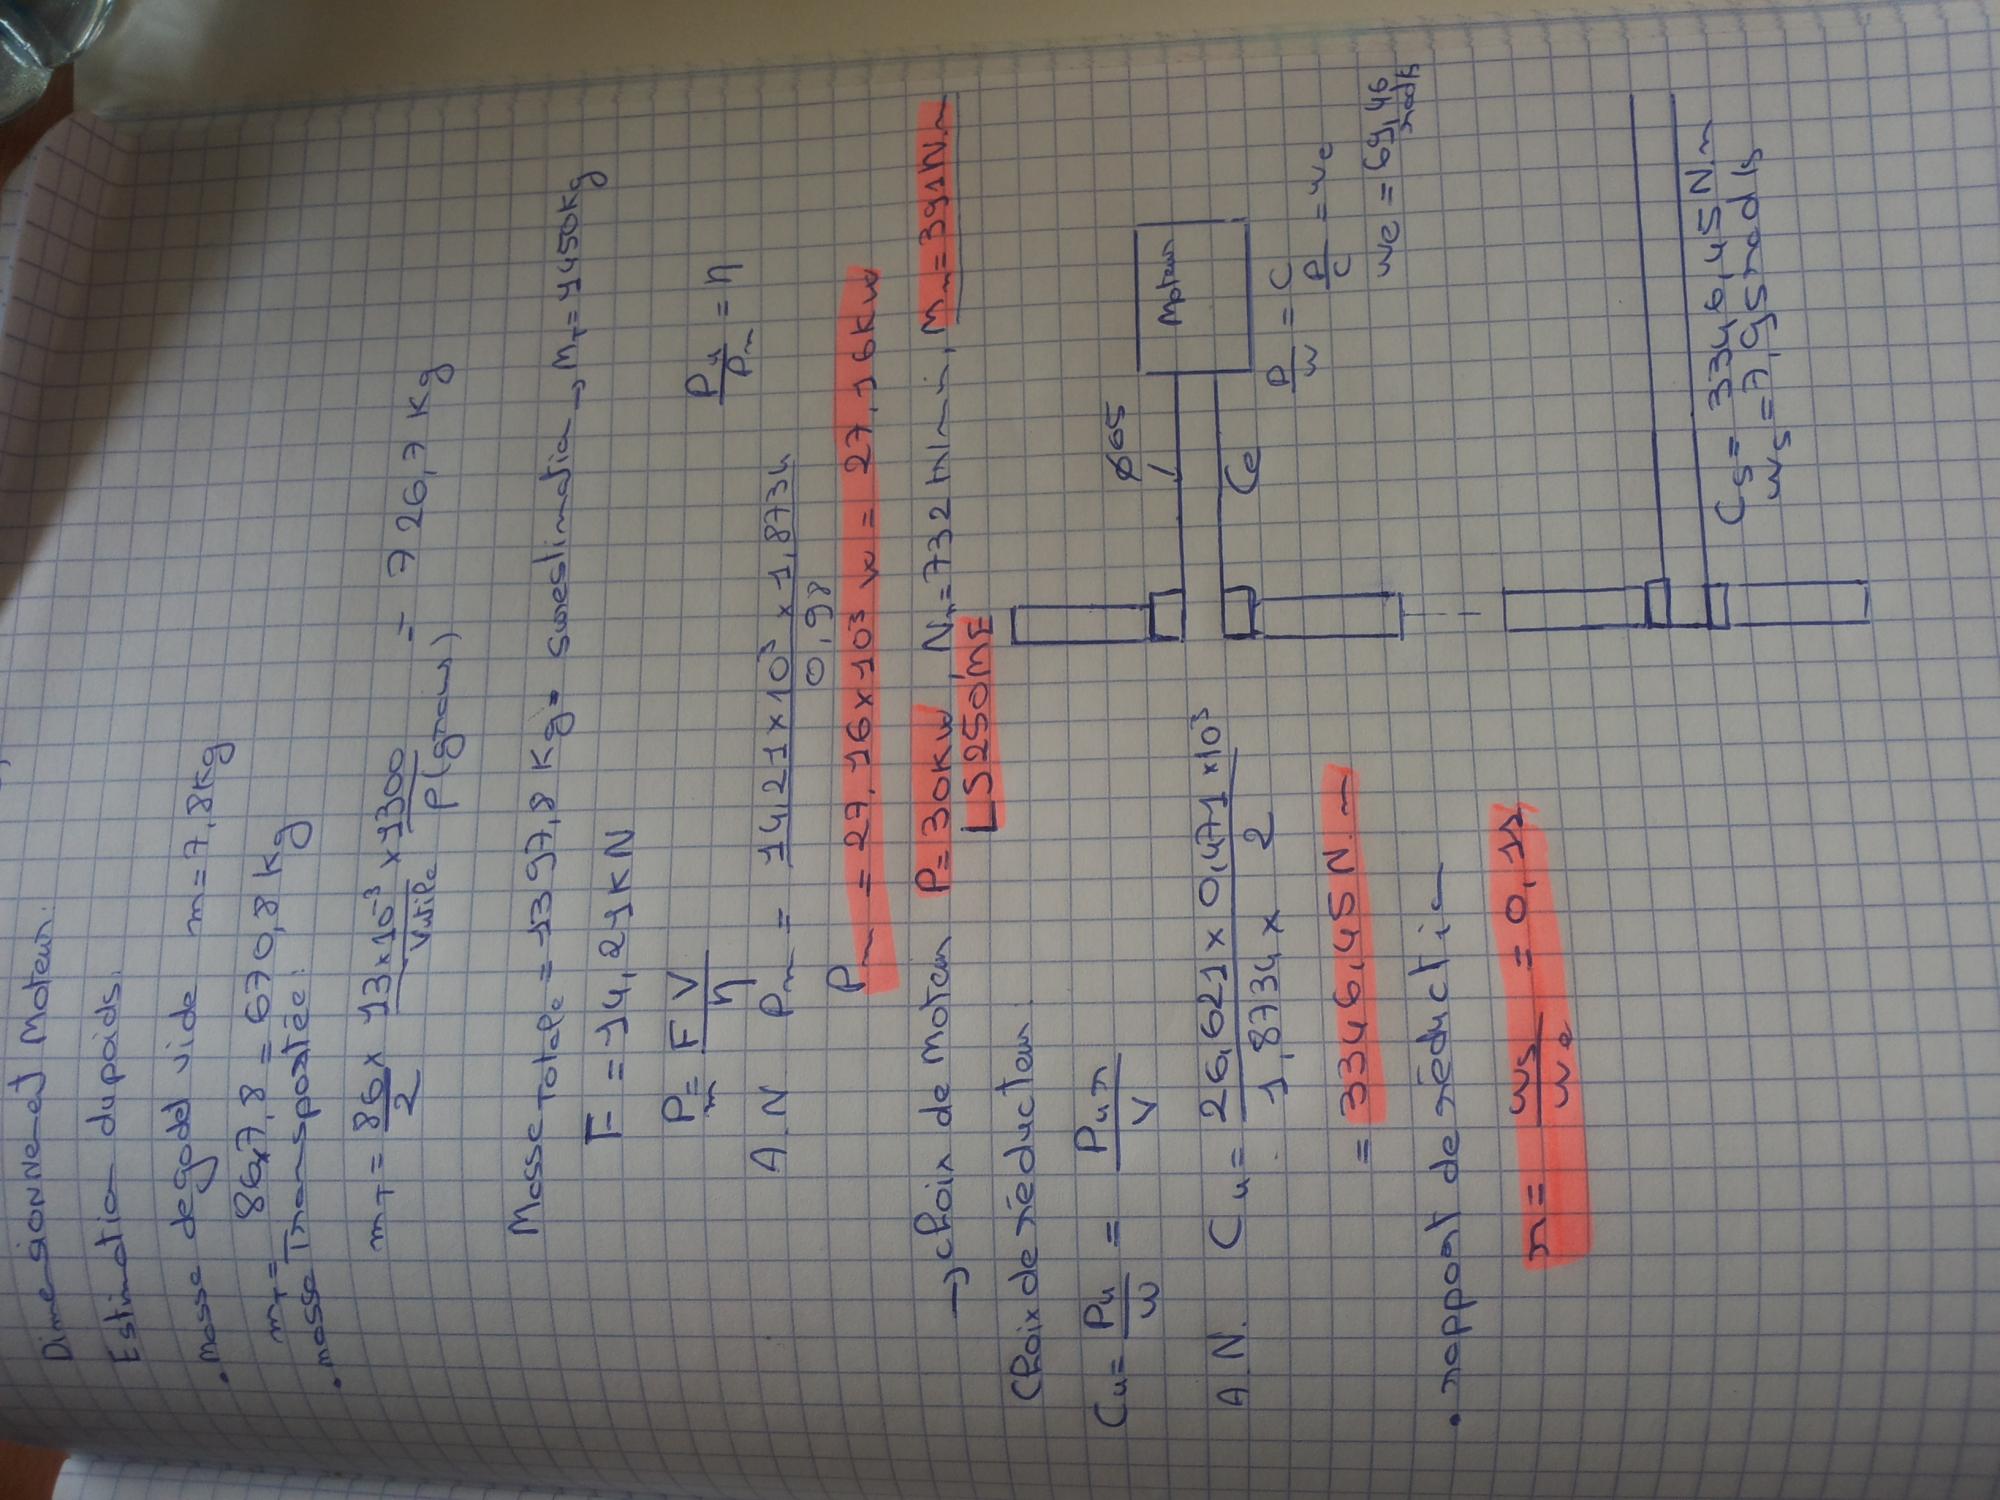 Dimensionnement Moteur.
Estimation du poids.
• masse de godet vide m = 7,8 Kg
mT = 86x7,8 = 670,8 Kg
• masse Transportée:
mT = 86/2 x 13x10⁻³ x 1300 = 726,7 Kg
Vutile ρ(grain)
Masse Totale = 1397,8 Kg = surestimation → MT = 1450Kg
F = 14,21 KN
Pm = FV/η
Pu/Pm = η
A.N Pm = 14,21x10³ x 1,8734/0,98
Pm = 27,16x10³ w = 27,16 Kw
→ choix de moteur P=30Kw, Nn=732 tr/min, Mn=391N.m
LS250ME
Choix de réducteur:
Cu = Pu/w = Pu r/V
A.N. Cu = 26,621 x 0,471 x10³/1,8734 x 2
= 3346,45 N.m
• rapport de réduction
r = ws/we = 0,12
Ø65
Moteur
Ce
P/w = C
P/C = we
we = 69,46 rad/s
Cs = 3346,45 N.m
ws = 7,95 rad/s